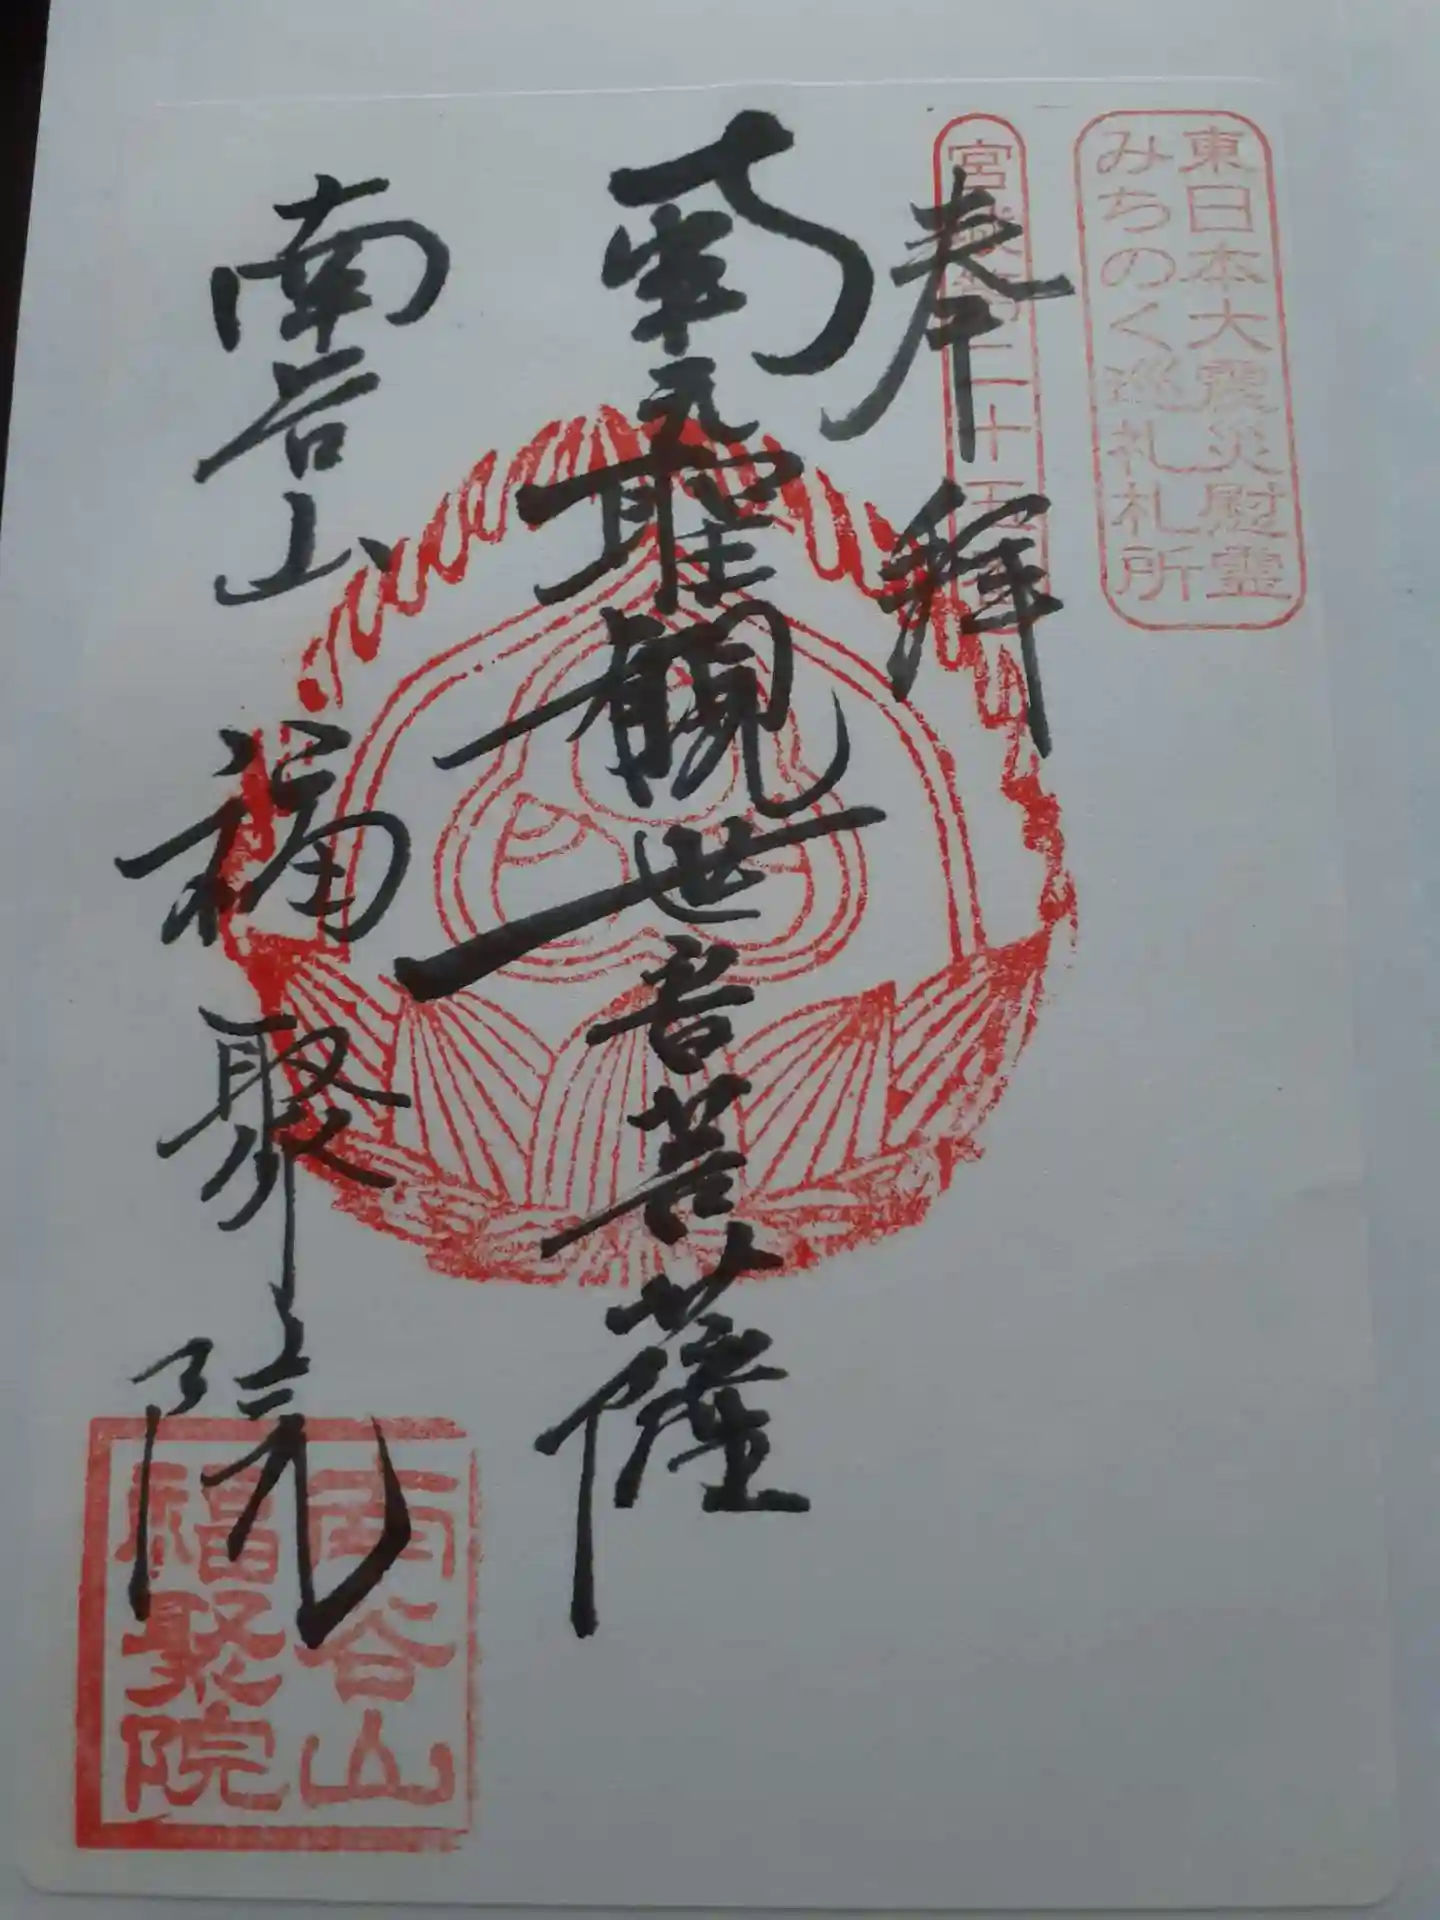 東日本大震災慰霊
みちのく巡礼札所
宮城第二十五
奉拜
南無聖観世音菩薩
南谷山
福聚院
南谷山
福聚院